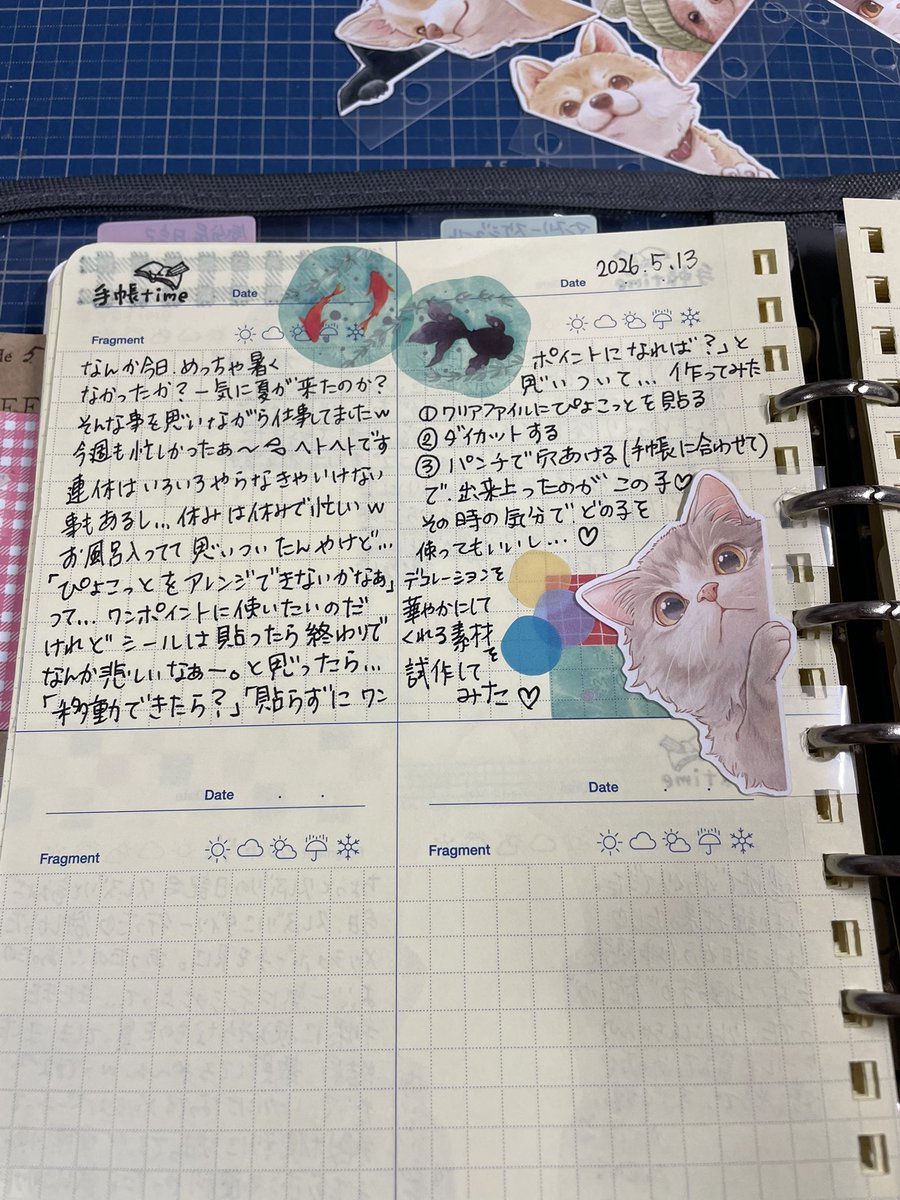 手帳time
Date . .
Fragment
なんか今日、めっちゃ暑く
なかったか？一気に夏が来たのか？
そんな事を思いながら仕事してましたw
今週も忙しかったぁ〜 ヘトヘトです
連休はいろいろやらなきゃいけない
事もあるし…休みは休みで忙しいw
お風呂入ってて思いついたんやけど…
「ぴょこっとをアレンジできないかなぁ」
って…ワンポイントに使いたいのだ
けれどシールは貼ったら終わりで
なんか悲しいなぁー。と思ったら…
「移動できたら？」「貼らずにワン
Date 2026.5.13
ポイントになれば？」と
思いついて…作ってみた
①クリアファイルにぴょこっとを貼る
②ダイカットする
③パンチで穴あける(手帳に合わせて)
で、出来上ったのがこの子♡
その時の気分でどの子を
使ってもいいし…♡
デコレーションを
華やかにして
くれる素材を
試作して
みた♡
Date . .
Fragment
Date . .
Fragment